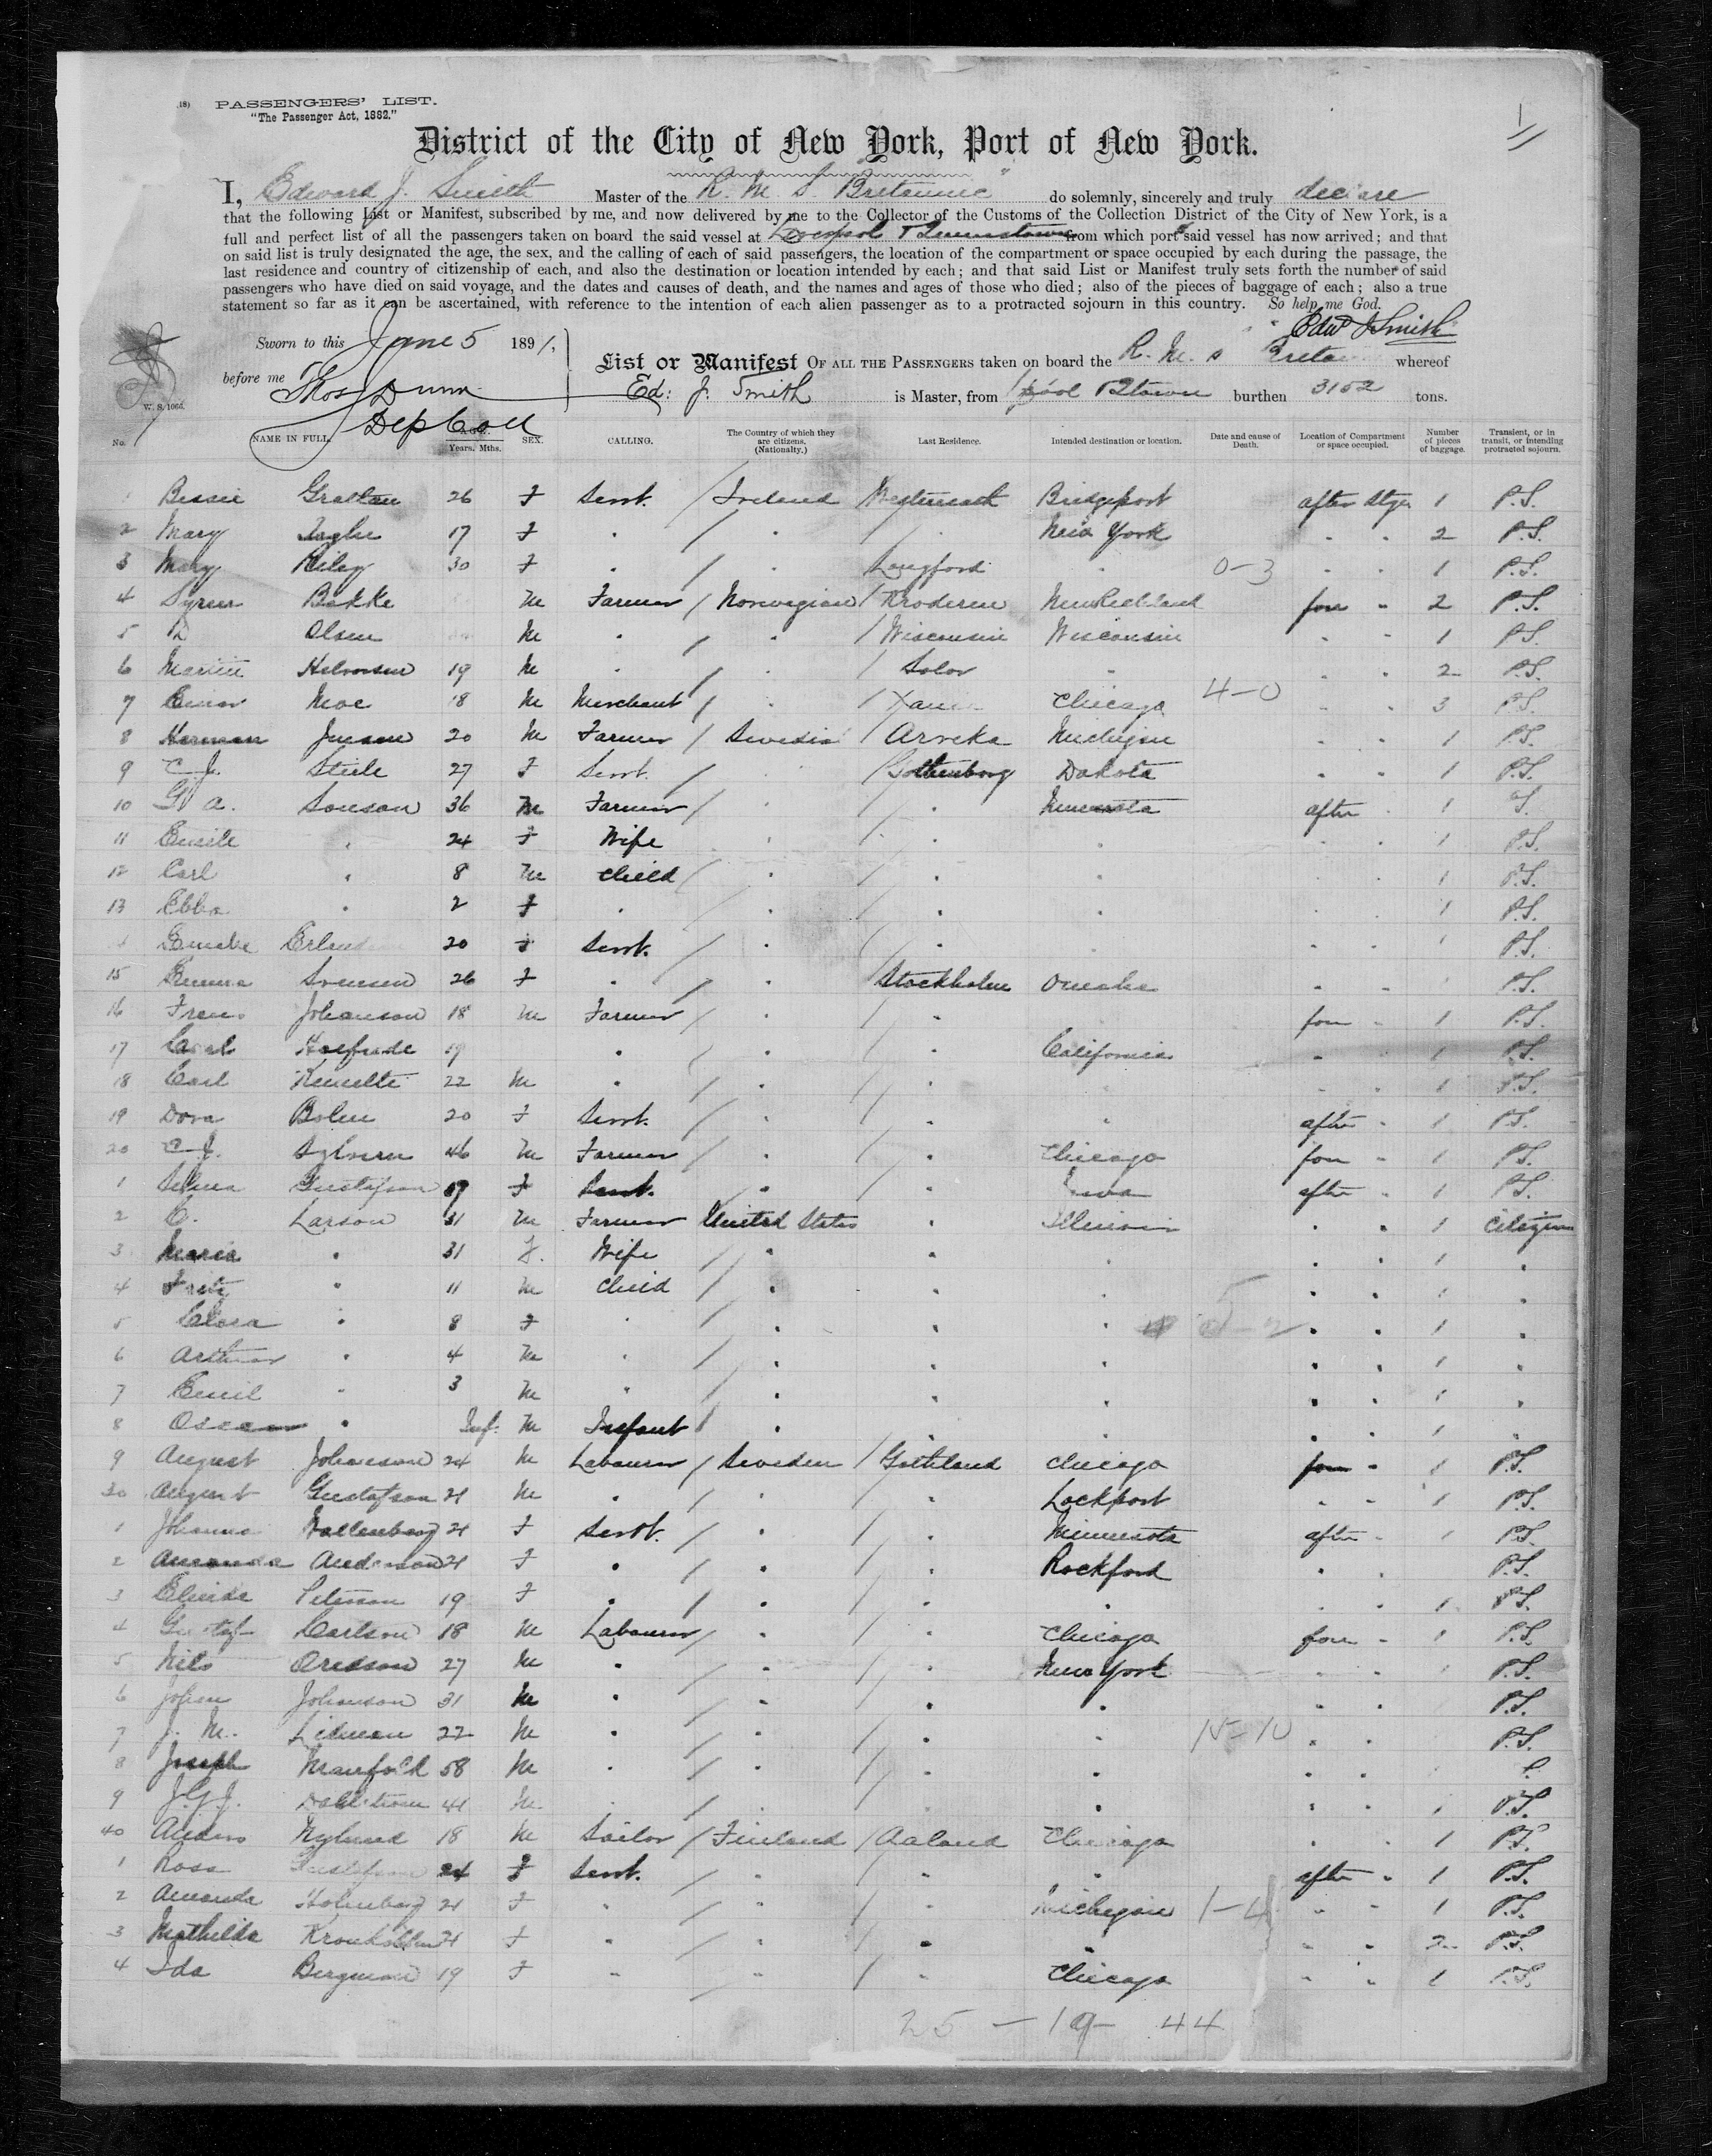 18) PASSENGERS' LIST.
"The Passenger Act, 1882."
1
District of the City of New York, Port of New York.
I, Edward J. Smith Master of the R. M. S. Britannic do solemnly, sincerely and truly declare
that the following List or Manifest, subscribed by me, and now delivered by me to the Collector of the Customs of the Collection District of the City of New York, is a
full and perfect list of all the passengers taken on board the said vessel at Liverpool & Queenstown from which port said vessel has now arrived; and that
on said list is truly designated the age, the sex, and the calling of each of said passengers, the location of the compartment or space occupied by each during the passage, the
last residence and country of citizenship of each, and also the destination or location intended by each; and that said List or Manifest truly sets forth the number of said
passengers who have died on said voyage, and the dates and causes of death, and the names and ages of those who died; also of the pieces of baggage of each; also a true
statement so far as it can be ascertained, with reference to the intention of each alien passenger as to a protracted sojourn in this country. So help me God.
Edwd J Smith
Sworn to this June 5 1891,
before me Thos J Dunn
Dep Coll
W. S. 1066.
List or Manifest OF ALL THE PASSENGERS taken on board the R. M. S Britannic whereof
Ed: J. Smith is Master, from L'pool & Qtown burthen 3152 tons.
No. NAME IN FULL. AGE. Years. Mths. SEX. CALLING. The Country of which they are citizens. (Nationality.) Last Residence. Intended destination or location. Date and cause of Death. Location of Compartment or space occupied. Number of pieces of baggage. Transient, or in transit, or intending protracted sojourn.
1 Bessie Grattan 26 F Servt. / Ireland / Westmeath Bridgeport after Stge. 1 P.S.
2 Mary 17 F " / " / " New York " " 2 P.S.
3 Mary Riley 30 F " / " Longford " 0-3 " " 1 P.S.
4 Bakke M Farmer / Norwegian / Kroderen New Richland fore " 2 P.S.
5 Olsen M " / " / Wisconsin Wisconsin " " 1 P.S.
6 Halvorsen 19 M " / " / Solor " " " 2 P.S.
7 Einar Moe 18 M Merchant / " / Chicago 4-0 " " 3 P.S.
8 Herman Jensen 20 M Farmer / Sweden / Arvika Michigan " " 1 P.S.
9 C. J. Steele 27 F Servt. / " / Gothenborg Dakota " " 1 P.S.
10 G. A. Sonson 36 M Farmer / " / " Minnesota after " 1 P.S.
11 Emile " 24 F Wife " / " " " " 1 P.S.
12 Carl " 8 M Child / " / " " 1 P.S.
13 Ebba " 2 F " / " / " " 1 P.S.
Emelie 20 F Servt. / " / " " " 1 P.S.
15 Emma Svensen 26 F " / " / Stockholm Omaha " " 1 P.S.
16 Johanson 18 M Farmer / " / " fore " 1 P.S.
17 19 " / " / " California " 1 P.S.
18 Carl 22 M " / " / " " " " 1 P.S.
19 Dora Bolin 20 F Servt. / " / " " after " 1 P.S.
20 C. J. 46 M Farmer / " / " Chicago fore " 1 P.S.
1 Selma Gustafson 19 F Servt. / " / " Iowa after " 1 P.S.
2 C. Larson 31 M Farmer United States " Illinois " " 1 Citizen
3 Maria " 31 F. Wife / " " " " " 1 "
4 Fritz " 11 M Child / " " " " " 1 "
5 Clara " 8 F " / " " " " " 1 "
6 Arthur " 4 M " / " " " " " 1 "
7 Emil " 3 M " / " " " " " 1 "
8 Oscar " Inf. M Infant / " " " " 1 "
9 August Johanson 24 M Labourer / Sweden / Gothland Chicago fore " 1 P.S.
30 August Gustafson 21 M " / " / " Lockport " " 1 P.S.
1 Johanna Wallenberg 21 F Servt. / " / " Minnesota after " 1 P.S.
2 Amanda Anderson 21 F " / " / " Rockford " " P.S.
3 Elvida Peterson 19 F " / " / " " " " 1 P.S.
4 Gustaf Carlson 18 M Labourer / " / " Chicago fore " 1 P.S.
5 Nils 27 M " / " / " New York " " 1 P.S.
6 Johan Johanson 31 M " / " / " " " " P.S.
7 J. M. Lidman 22 M " / " / " " 15-10 " " P.S.
8 Joseph 58 M " / " / " " " " S.
9 J. G. J. Dahlstrom 41 M " / " / " " " " 1 P.S.
40 Anders Nylund 18 M Sailor / Finland / Aaland Chicago " " 1 P.S.
1 Rosa Gustafson 24 F Servt. / " / " " after " 1 P.S.
2 Amanda Holmberg 21 F " / " / " Michigan 1-4 " " 1 P.S.
3 Mathilda Kronholm 21 F " / " / " " " " 2 P.S.
4 Ida Bergman 19 F " / " / " Chicago " " 1 P.S.
25 - 19 - 44